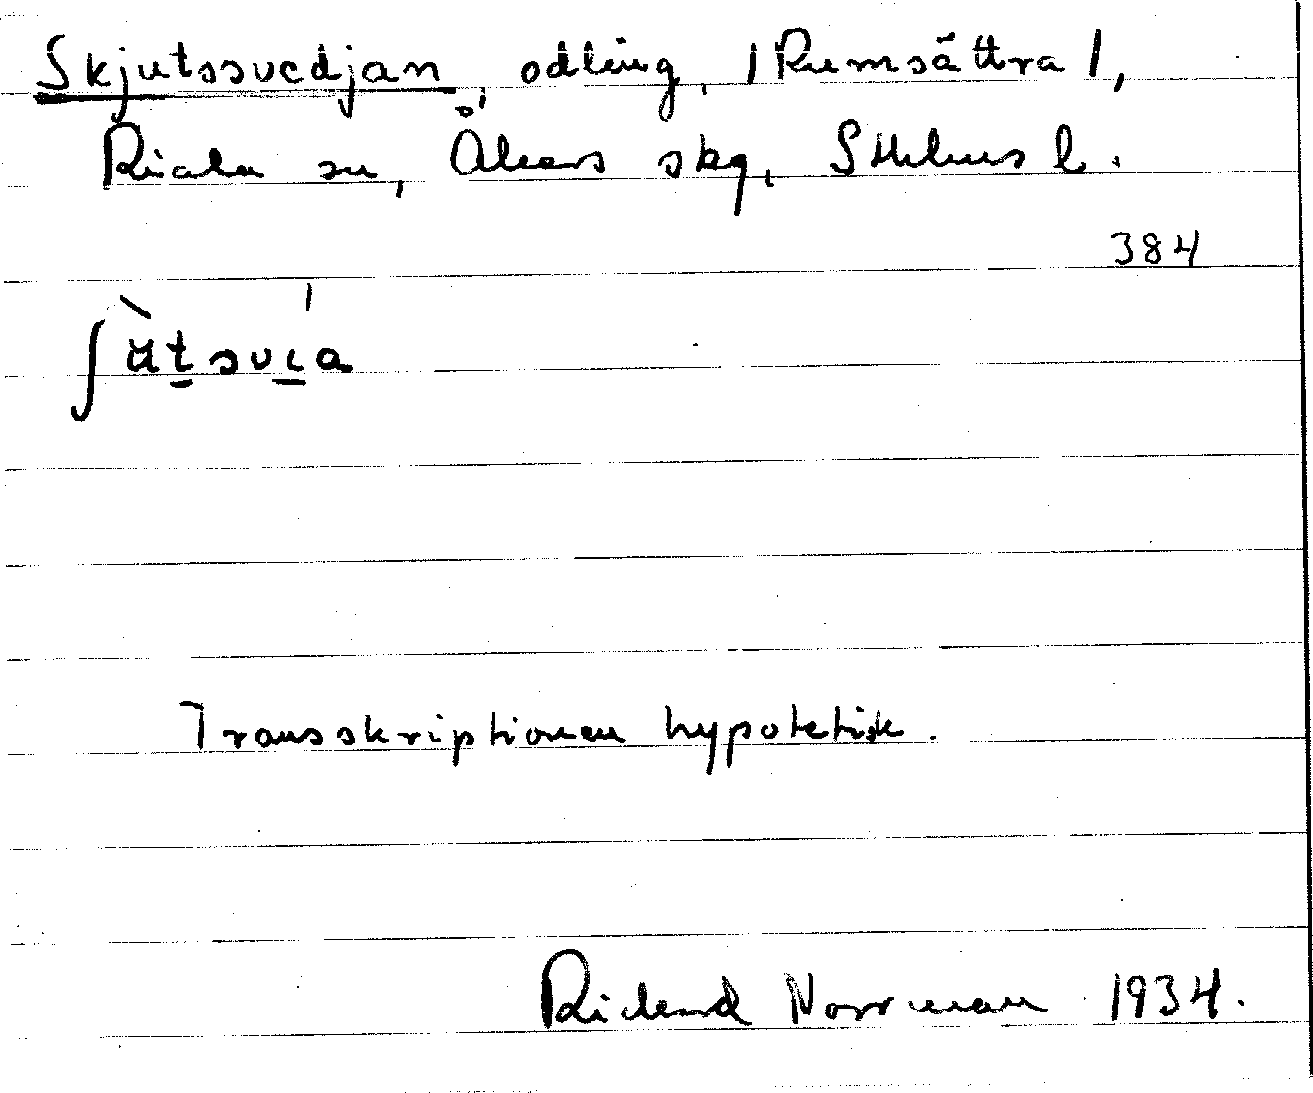 Skjutssvedjan, odling, /Rumsättra/,
Riala sn, Åkers skg, Sthlms l.
384
ʃu̇̀tsvi̲a
Transskriptionen hypotetisk.
Rickard Norrman 1934.